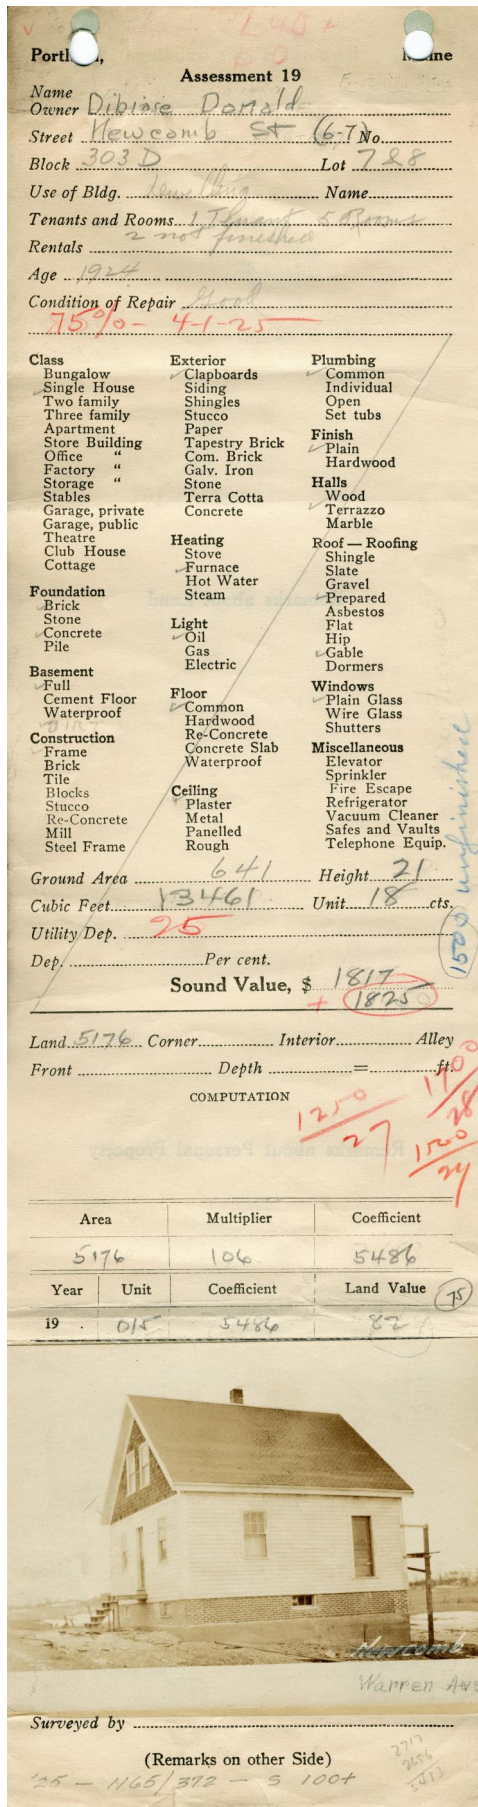 Portland, Maine
Assessment 19
Name
Owner Dibiase Donald
Street Newcomb St (6-7) No
Block 303D Lot 7 & 8
Use of Bldg. Dwelling Name
Tenants and Rooms 1 Tenant 5 Rooms
2 not finished
Rentals
Age 1924
Condition of Repair Good
75% - 4-1-25
Class
Bungalow
Single House
Two family
Three family
Apartment
Store Building
Office "
Factory "
Storage "
Stables
Garage, private
Garage, public
Theatre
Club House
Cottage
Foundation
Brick
Stone
Concrete
Pile
Basement
Full
Cement Floor
Waterproof
DIRT
Construction
Frame
Brick
Tile
Blocks
Stucco
Re-Concrete
Mill
Steel Frame
Exterior
Clapboards
Siding
Shingles
Stucco
Paper
Tapestry Brick
Com. Brick
Galv. Iron
Stone
Terra Cotta
Concrete
Heating
Stove
Furnace
Hot Water
Steam
Light
Oil
Gas
Electric
Floor
Common
Hardwood
Re-Concrete
Concrete Slab
Waterproof
Ceiling
Plaster
Metal
Panelled
Rough
Plumbing
Common
Individual
Open
Set tubs
Finish
Plain
Hardwood
Halls
Wood
Terrazzo
Marble
Roof—Roofing
Shingle
Slate
Gravel
Prepared
Asbestos
Flat
Hip
Gable
Dormers
Windows
Plain Glass
Wire Glass
Shutters
Miscellaneous
Elevator
Sprinkler
Fire Escape
Refrigerator
Vacuum Cleaner
Safes and Vaults
Telephone Equip.
1500 unfinished
Ground Area 641 Height 21
Cubic Feet 13461 Unit 18 cts.
Utility Dep. 25
Dep. Per cent.
Sound Value, $ 1817
+ 1825
Land 5176 Corner Interior Alley
Front Depth = ft.
COMPUTATION
1250/27
1700/28
1500/24
Area Multiplier Coefficient
5176 106 5486
Year Unit Coefficient Land Value
75
19 . 015 5486 82
Newcomb
Warren Ave
Surveyed by
(Remarks on other Side)
'25 - 1165/372 - S 100+
2717
2656
5413